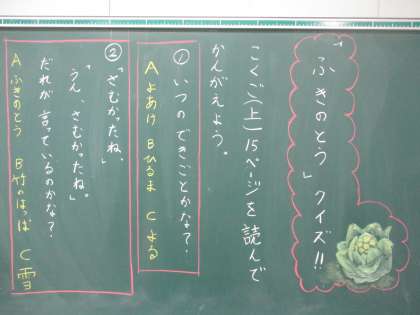 「ふきのとう」クイズ!!
こくご(上)15ページを読んで
かんがえよう。
①いつのできごとかな?
Aよあけ Bひるま Cよる
②「さむかったね。」
「うん、さむかったね。」
だれが言っているのかな?
Aふきのとう B竹のはっぱ C雪